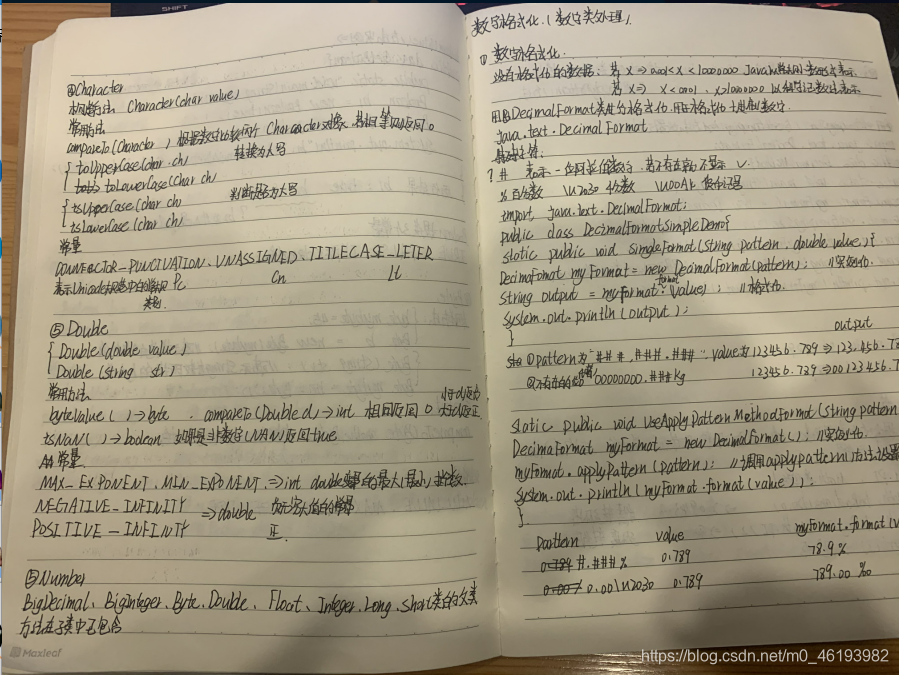 ④Character
构造方法 Character(char value)
常用方法
compareTo(Character ) 根据数字比较两个Character对象,若相等则返回0
{ toUpperCase(char ch) 转换为大写
toLowerCase(char ch)
{ isUpperCase(char ch) 判断是否为大写
isLowerCase(char ch)
常量
CONNECTOR_PUNCUATION、UNASSIGNED、TITLECASE_LETER
表示Unicode规范中的常规 Pc Cn Lt
类别.
⑤Double
{ Double(double value)
Double(String str)
常用方法
byteValue( )→byte . compareTo(Double d)→int 相同返回0
isNaN( )→boolean 如果是非数字(NAN)返回true
常量
MAX_EXPONENT、MIN_EXPONENT ⇒int double变量的最大(最小)指数.
NEGATIVE_INFINITY ⇒double 负无穷大值的常量
POSITIVE_INFINTY 正.
⑤Number
BigDecimal、BigInteger、Byte、Double、Float、Integer、Long、Short类的父类
方法在子类中已包含
Maxleaf
数字格式化.(数字类处理).
① 数字格式化.
没有格式化的数据:若 X ⇒ 0.001<X<10000000 Java以常规小数形式表示
若 X ⇒ X<0.001 . X>10000000 以科学记数法表示
用DecimalFormat类进行格式化.
java.text.DecimalFormat
? # 表示一位可长的数字,若不存在就不显示 ✓
% 百分数 \u2030 千分数 \u00A4 货币记号
import java.text.DecimalFormat;
public class DecimalFormatSimpleDemo{
static public void SimgleFormat(String pattern, double value){
DecimaFomat myFormat = new DecimalFormat(pattern); //实例化.
String output = myFormat.format(value); //格式化.
System.out.println(output);
}
output
①pattern为"###,###.###" value为123456.789 ⇒ 123,456.7
00000000.###kg 123456.789 ⇒00123456.7
static public void UseApplyPatternMethodFormat(String pattern
DecimaFormat myFormat = new DecimalFormat(); //实例化.
myFormat.applyPattern(pattern); //调用applyPattern()方法设置
System.out.println(myFormat.format(value));
}
pattern value myFormat.format(v
#.###% 0.789 78.9%
0.00\u2030 0.789 789.00‰
https://blog.csdn.net/m0_46193982